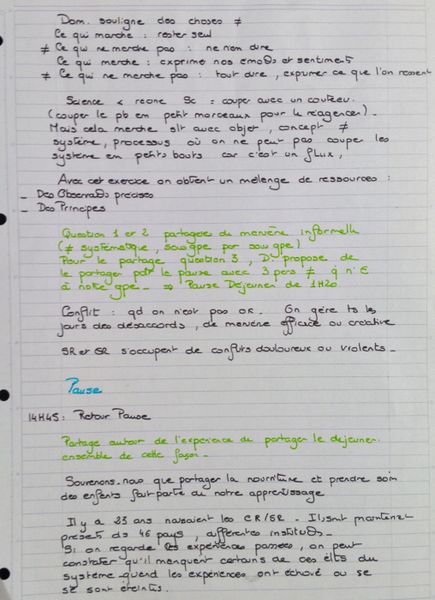 Dom. souligne des choses ≠
Ce qui marche : rester seul
≠ Ce qui ne marche pas : ne rien dire
Ce qui marche : exprime nos émot° et sentiments
≠ Ce qui ne marche pas : tout dire, exprimer ce que l'on ressent
Science < racine Sc = couper avec un couteau.
(couper le pb en petit morceaux pour le réagencer).
Mais cela marche slt avec objet, concept ≠
système, processus où on ne peut pas couper les
système en petits bouts car c'est un flux,
Avec cet exercice on obtient un mélange de ressources :
- Des Observat° précises
- Des Principes
Question 1 et 2 partagées de manière informelle
(≠ systématique, sous gpe par sous gpe)
Pour le partage question 3, D. propose de
le partager pdt la pause avec 3 pers ≠ q n' E
à notre gpe. ⇒ Pause Déjeuner de 1H20
Conflit : qd on n'est pas ok. On gère ts les
jours des désaccords, de manière efficace ou creative
SR et CR s'occupent de conflits douloureux ou violents.
Pause
14H45 : Retour Pause
Partage autour de l'experience du partager le dejeuner
ensemble de cette façon.
Souvenons-nous que partager la nourriture et prendre soin
des enfants fait partie de notre apprentissage
Il y a 23 ans naissaient les CR/SR. Ils sont maintenant
présents ds 46 pays, différentes institut°.
Si on regarde les expériences passées, on peut
constater qu'il manquent certains de ces élts du
système quand les expériences ont échoué ou se
se sont éteintes.